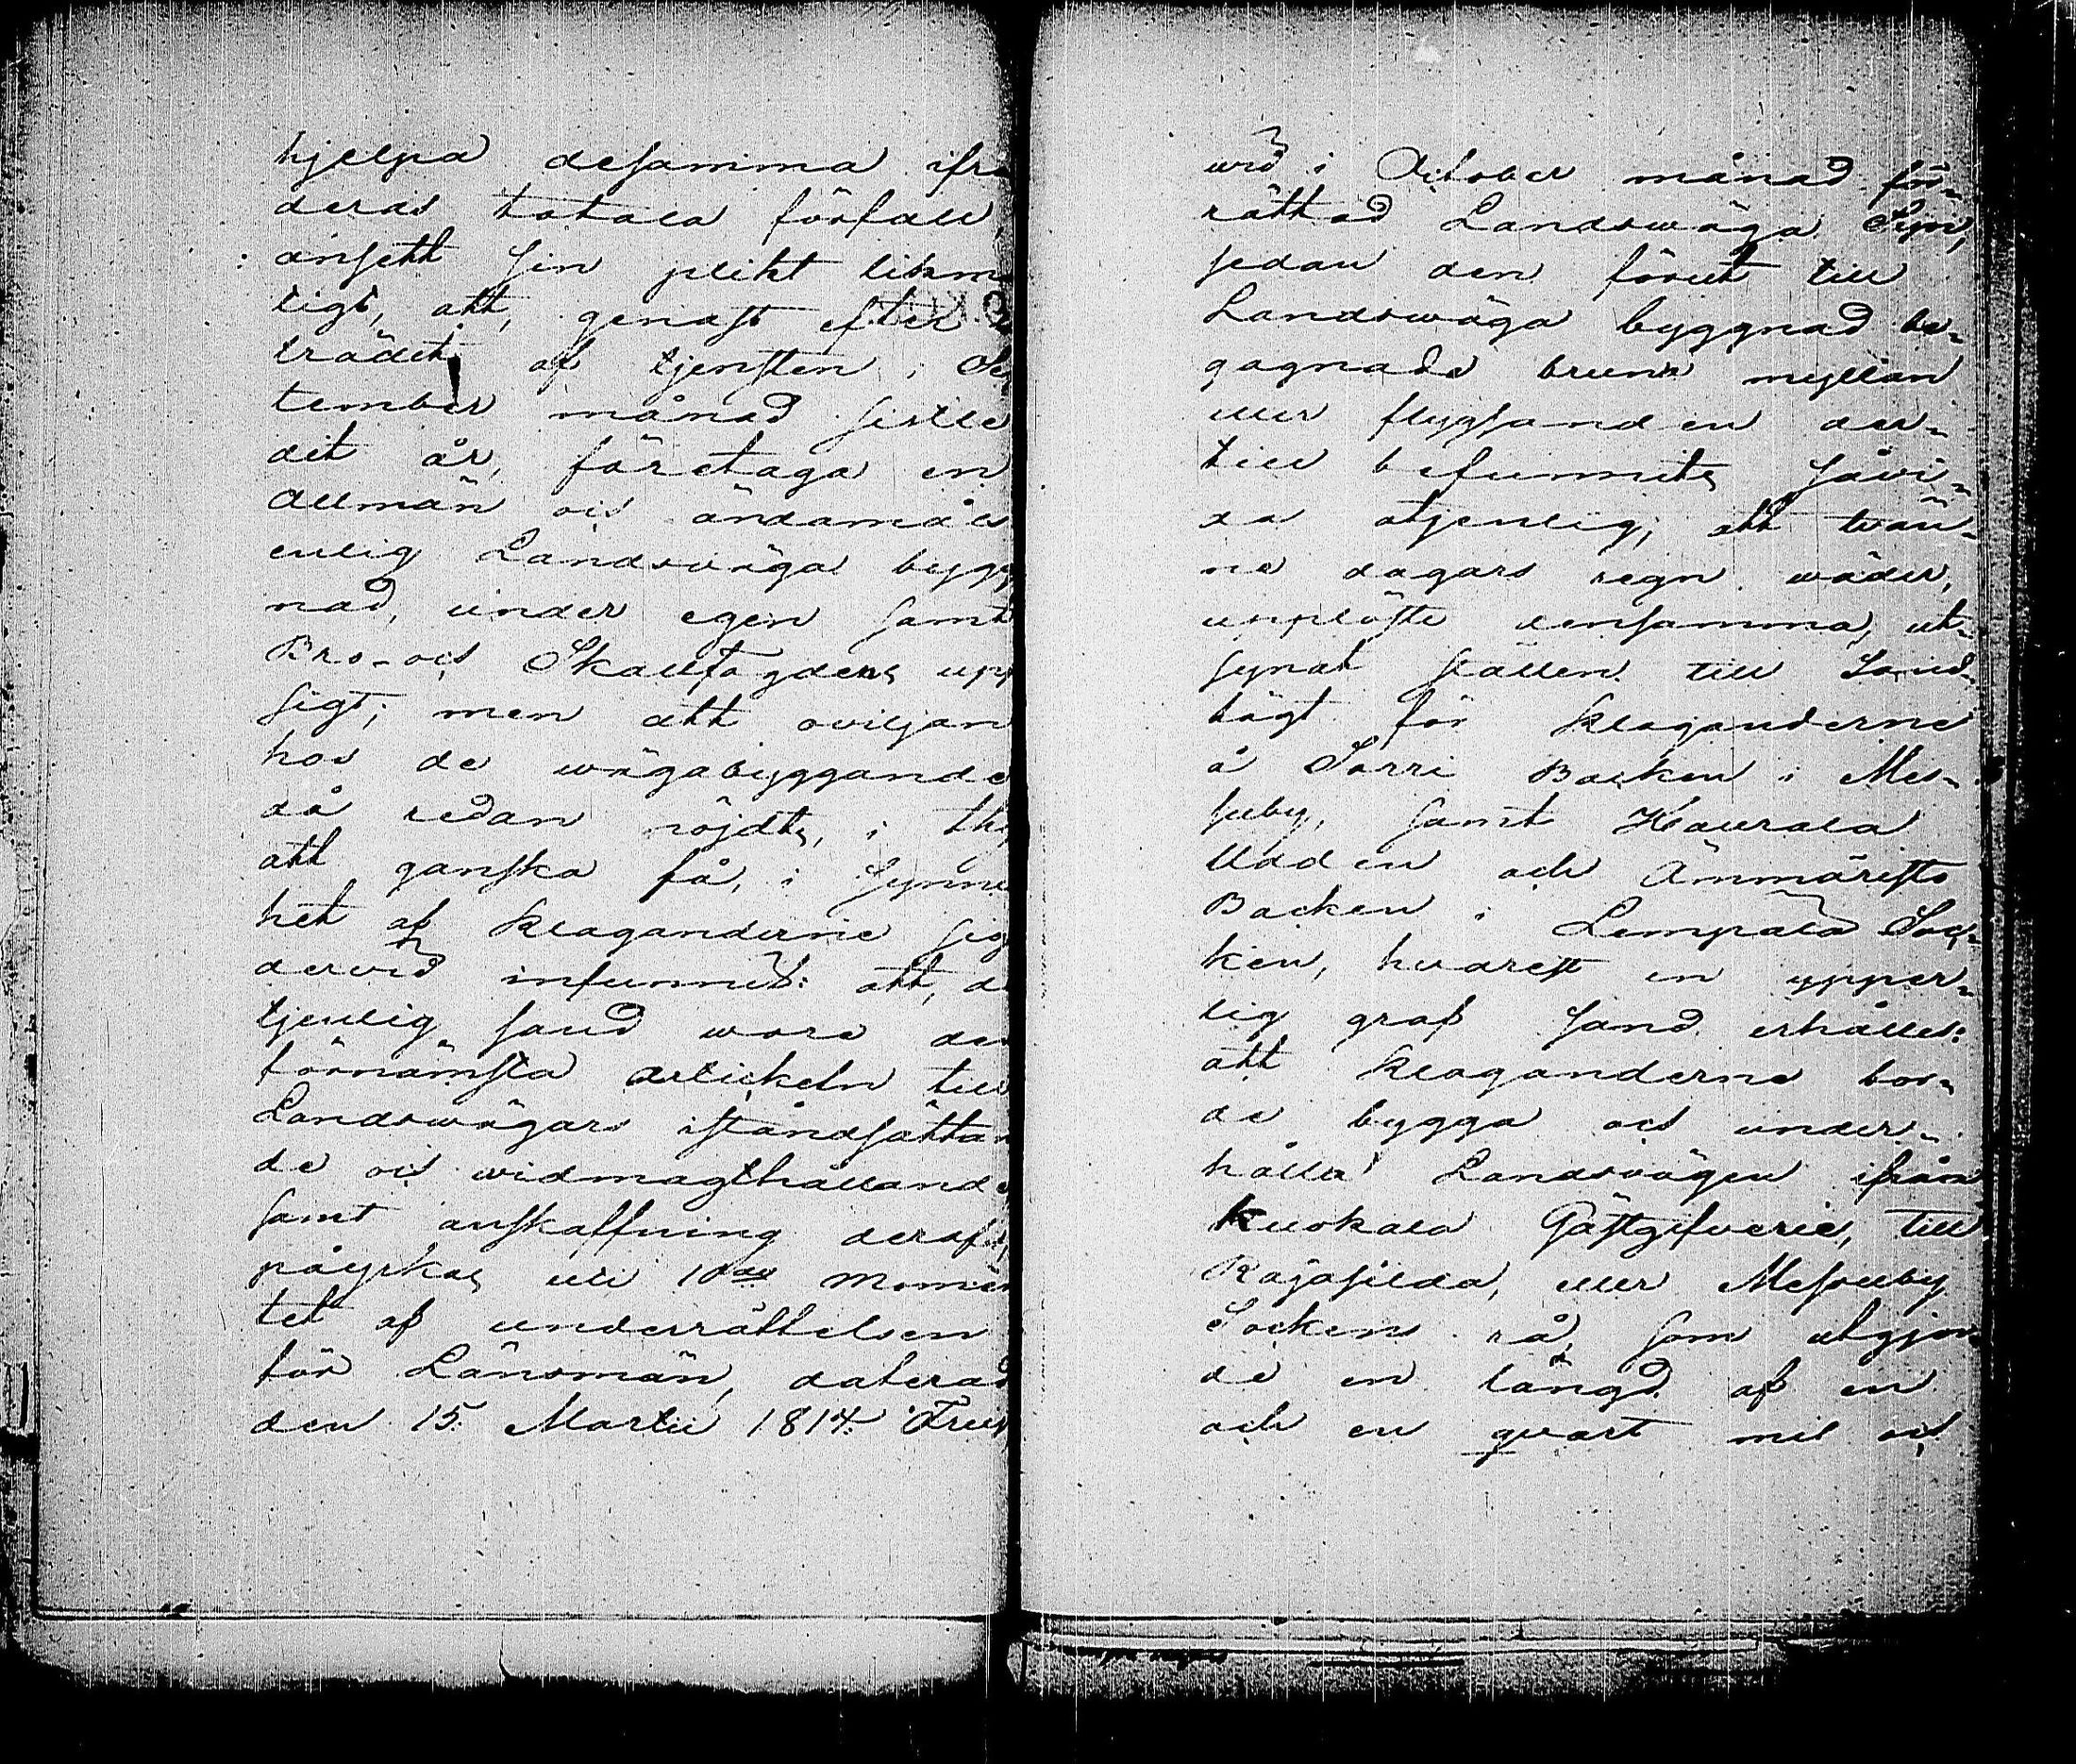 hjelpa desamma ifrå
deras totala förfall,
ansett sin plikt likm
ligt, att, genast efter
trädet af tjensten i Sep
tember månad sistle
dit år, företaga en
allmän och ändamåls
enlig Landsväga bygg
nad, under egen samt
Bro- och Skallfogdens upp
sigt; men att oviljan
hos de wägabyggande
då redan röjdts, i thy
att ganska få, i synner
het af klaganderne sig
dervid infunnit: att, då
tjenlig sand wore den
förnämsta artickeln till
Landswägars iståndsättan
de och widmagthållande
samt anskaffning deraf,
påyrkas uti 10de momen
tet af underrättelsen
för Länsmän, daterad
den 15 Martii 1814. Klag
wid i October månad för-
rättad Landswäga Syn,
sedan den förut till
Landswäga byggnad be-
gagnade bruna myllan
eller flygsanden der-
till befunnits såvi-
da otjenlig, att twän-
ne dagars regn wäder,
upplöste densamma, ut-
synat ställen till Sand-
tägt för klaganderne
å Sorri Backen i Mes-
suby, samt Kaurala
Udden och Ämmäristö
Backen i Lempäälä Soc-
ken, hvarest en ypper-
lig grof sand erhålles:
att klaganderne bor-
de bygga och under-
hålla Landsvägen ifrån
Kuokala Gästgifverie, till
Rajasilda, eller Messuby
Socken rå, som utgjor-
de en längd af en
och en qvart mil och